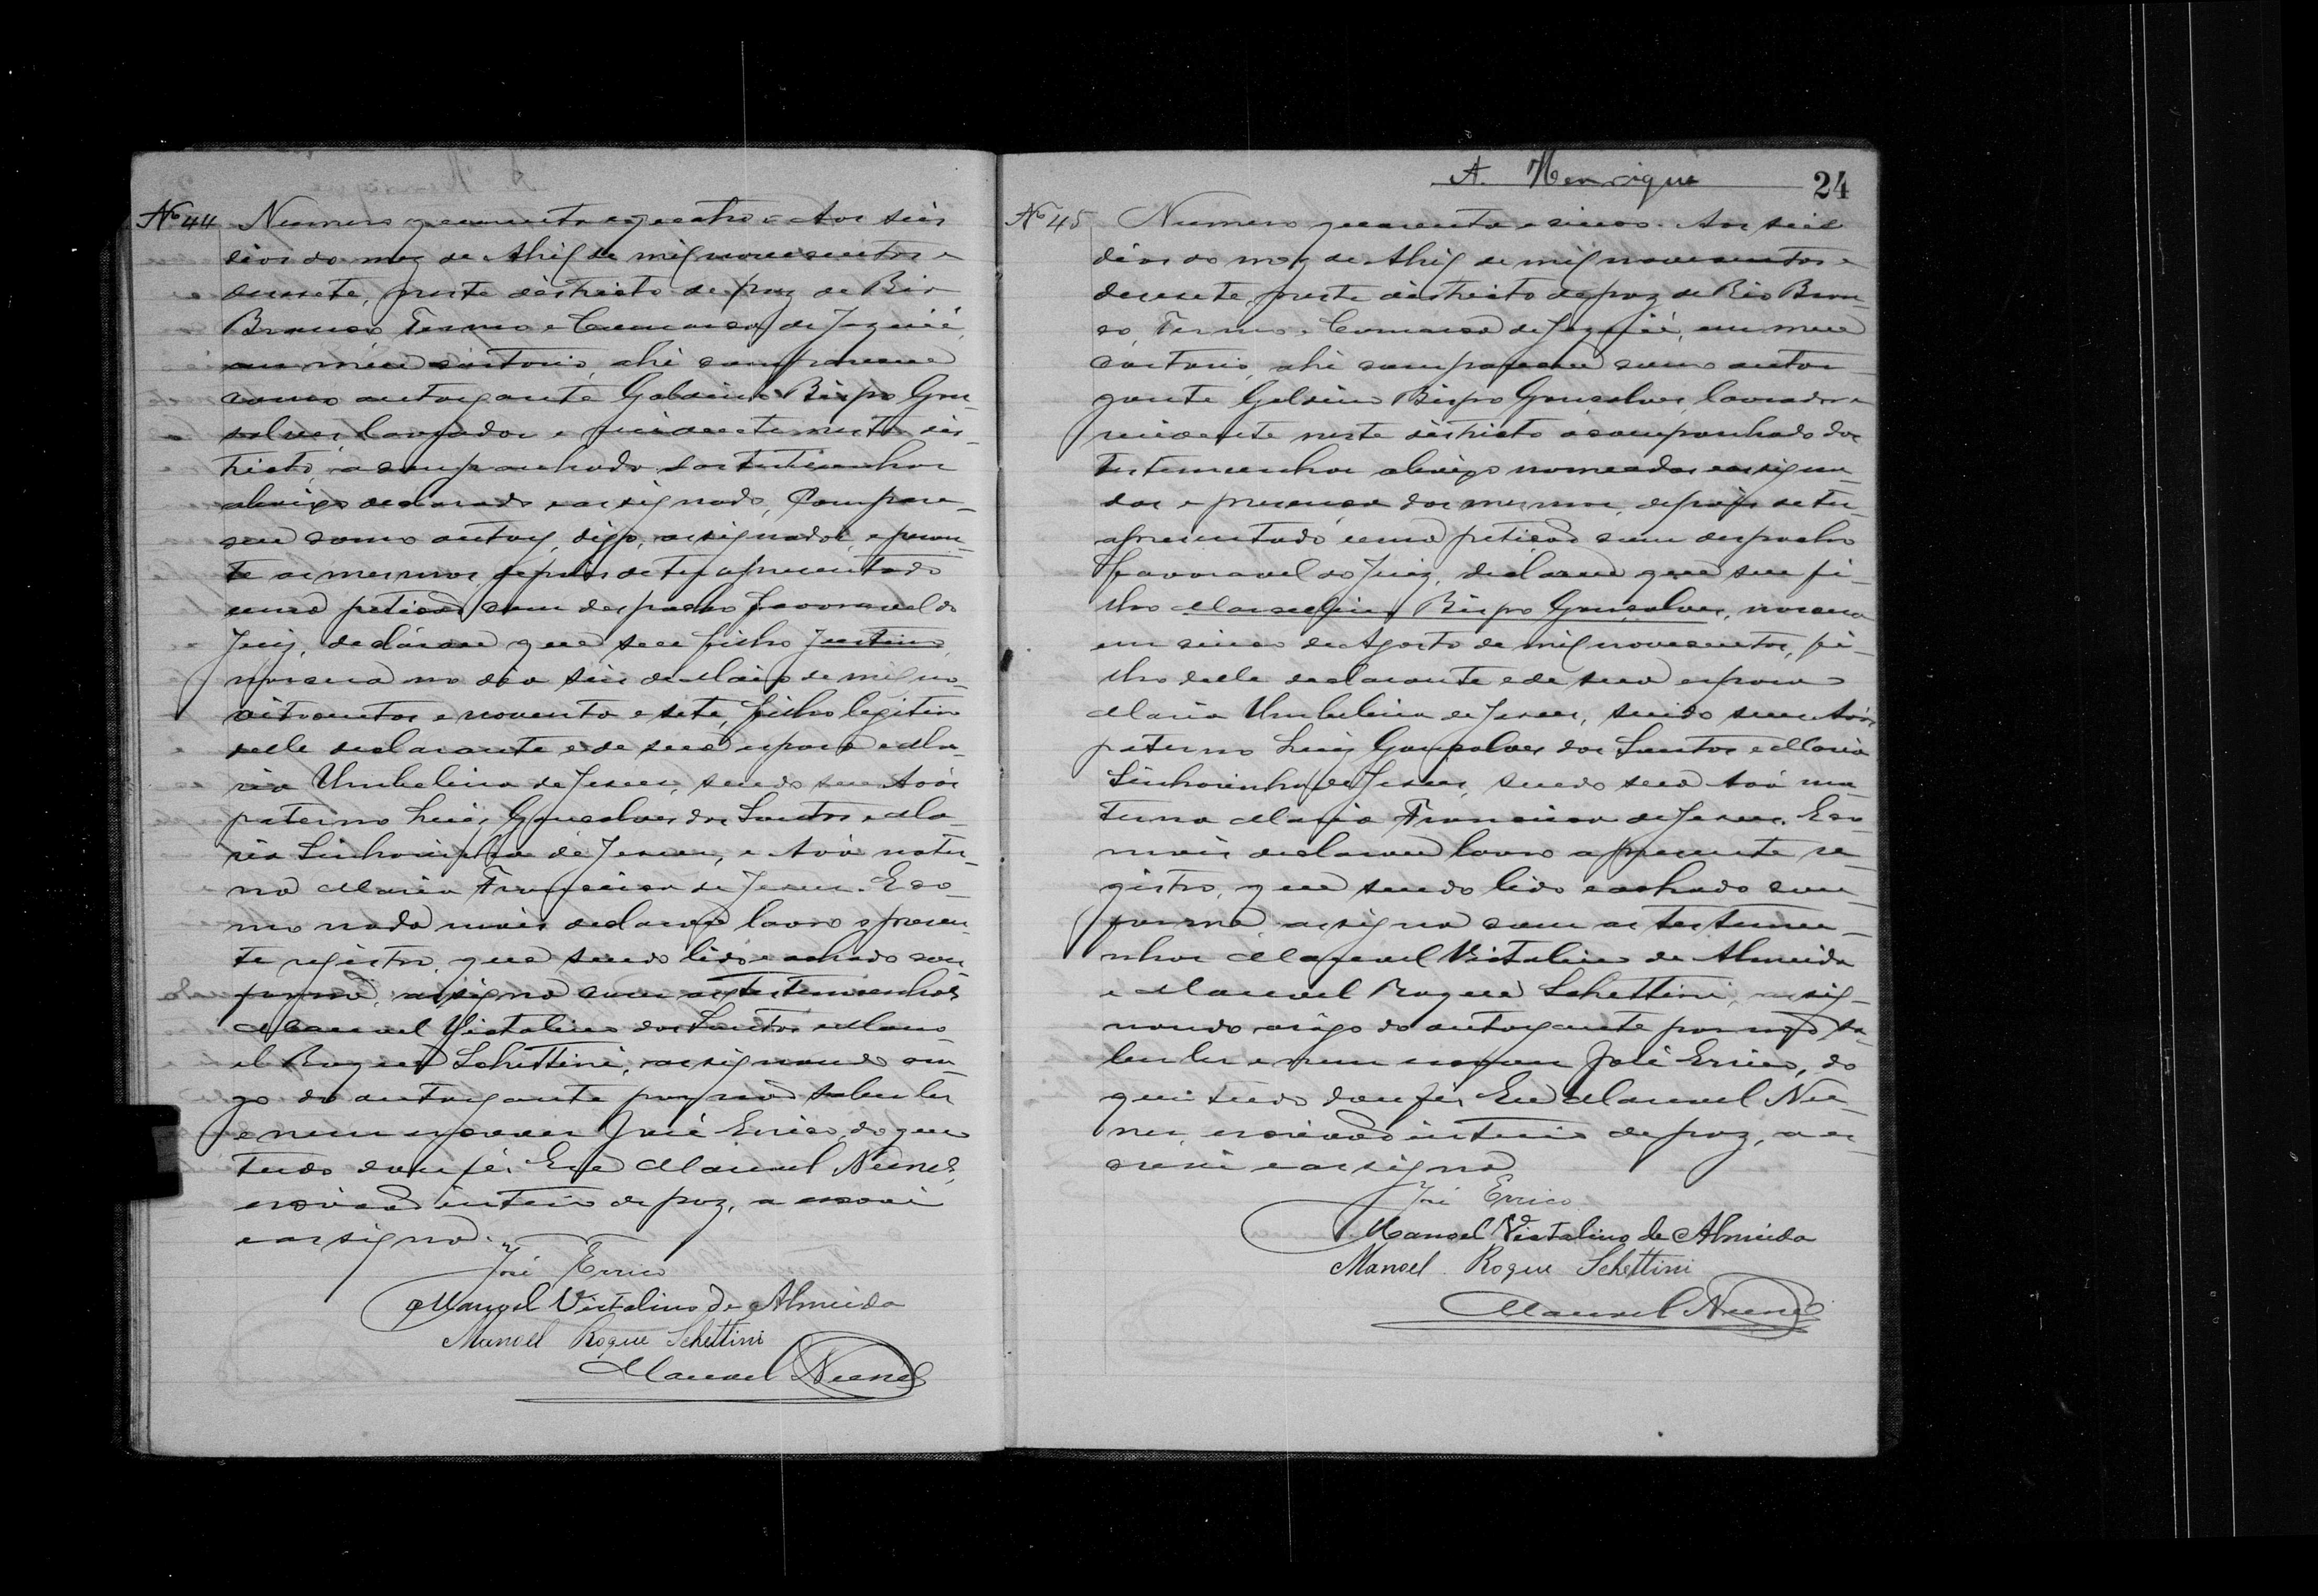 Nº 44 Numero quarenta e quatro. Aos seis
dias do mez de Abril de mil novecentos e
desesete, neste districto de paz de Rio
Branco, Termo e Comarca de Jequié,
em meu cartorio, ahi compareceu
como outorgante Galdino Bispo Gon-
salves, lavrador e residente neste dis-
tricto, acompanhado das testemunhas
abaixo declarado e assignado, Compare-
ceu como outorg, digo, assignados, e peran-
te as mesmas, depois de ter apresentado
uma petição com despacho favoravel do
Juiz, declarou que seu filho Justino,
nasceu no dia seis de Maio de mil
oitocentos e noventa e sete, filho legitimo
delle declarante e de sua esposa Ma-
ria Umbelina de Jesus, sendo seu Avós
paterno Luiz Gonsalves dos Santos e Ma-
ria Sinhorinha de Jesus, e Avó mater-
na Maria Francisca de Jesus. E co-
mo nada mais declarou lavro o presen-
te registro, que sendo lido e achado con-
forme, assigna com as testemunhas
Manoel Victalino dos Santos e Mano-
el Roque Schettini, assignando a ro-
go do outorgante por não saber ler
e nem escrever José Errico, do que
tudo dou fé. Eu Manoel Nunes,
escrivão interino de paz, o escrevi
e assigno.
José Errico
Manoel Victalino de Almeida
Manoel Roque Schettini
Manoel Nunes
A. Henrique 24
Nº 45 Numero quarenta e cinco. Aos seis
dias do mez de Abril de mil novecentos e
desesete, neste districto de paz de Rio Bran-
co, Termo e Comarca de Jequié, em meu
cartorio, ahi compareceu como outor-
gante Galdino Bispo Gonsalves, lavrador e
residente neste districto acompanhado das
testemunhas abaixo nomeadas e assigna-
das e presença das mesmas, depois de ter
apresentado uma petição com despacho
favoravel do Juiz, declarou que seu fi-
lho Marcelino Bispo Gonçalves, nasceu
em cinco de Agosto de mil novecentos, fi-
lho delle declarante e de sua esposa
Maria Umbelina de Jesus, sendo seus Avós
paterno Luiz Gonçalves dos Santos e Maria
Sinhorinha de Jesus, sendo sua Avó ma-
terna Maria Francisca de Jesus. E co
mais declarou lavro o presente re-
gistro, que sendo lido e achado con-
forme, assigna com as testemu-
nhas Manoel Victalino de Almeida
e Manoel Roque Schettini, assig-
nando a rogo do outorgante por não sa-
ber ler e nem escrever José Errico, do
que tudo dou fé. Eu Manoel Nu-
nes, escrivão interino de paz, o es-
crevi e assigno
José Errico
Manoel Victalino de Almeida
Manoel Roque Schettini
Manoel Nunes